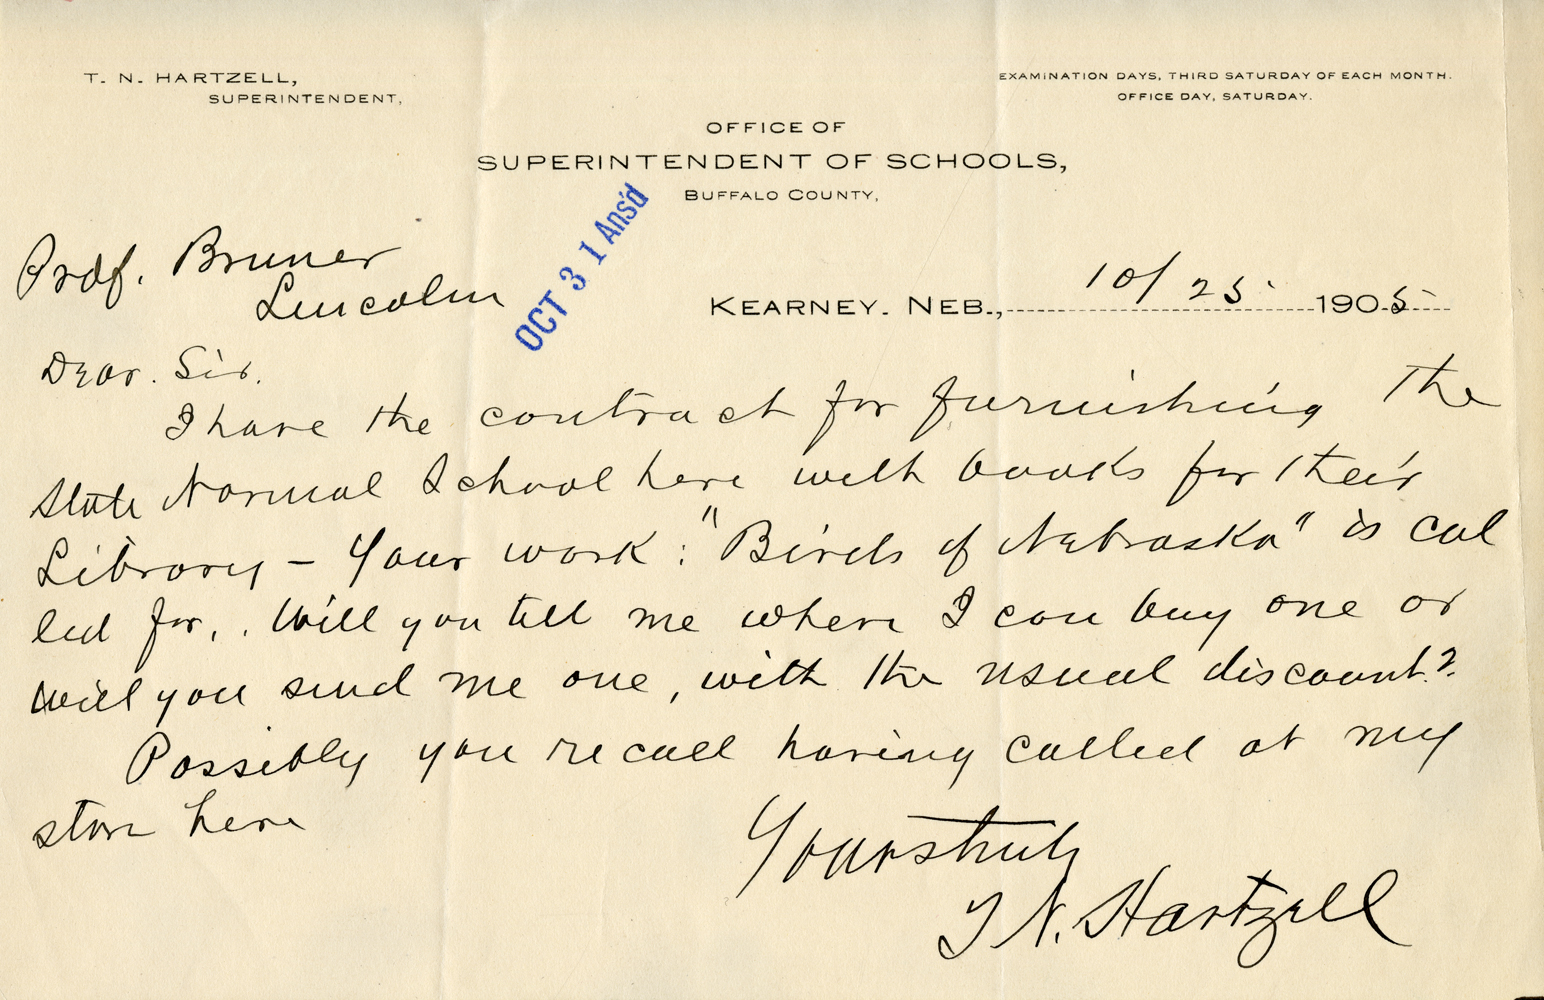 T. N. HARTZELL,
SUPERINTENDENT,
EXAMINATION DAYS, THIRD SATURDAY OF EACH MONTH.
OFFICE DAY, SATURDAY.
OFFICE OF
SUPERINTENDENT OF SCHOOLS,
BUFFALO COUNTY,
OCT 31 Ans'd
Prof. Bruner
Lincoln
KEARNEY. NEB., 10/25 1905
Dear. Sir.
I have the contract for furnishing the
State Normal School here with books for their
Library – Your work: "Birds of Nebraska" is cal
led for,. Will you tell me where I can buy one or
will you send me one, with the usual discount?
Possibly you recall having called at my
store here
Yours truly
T N. Hartzell